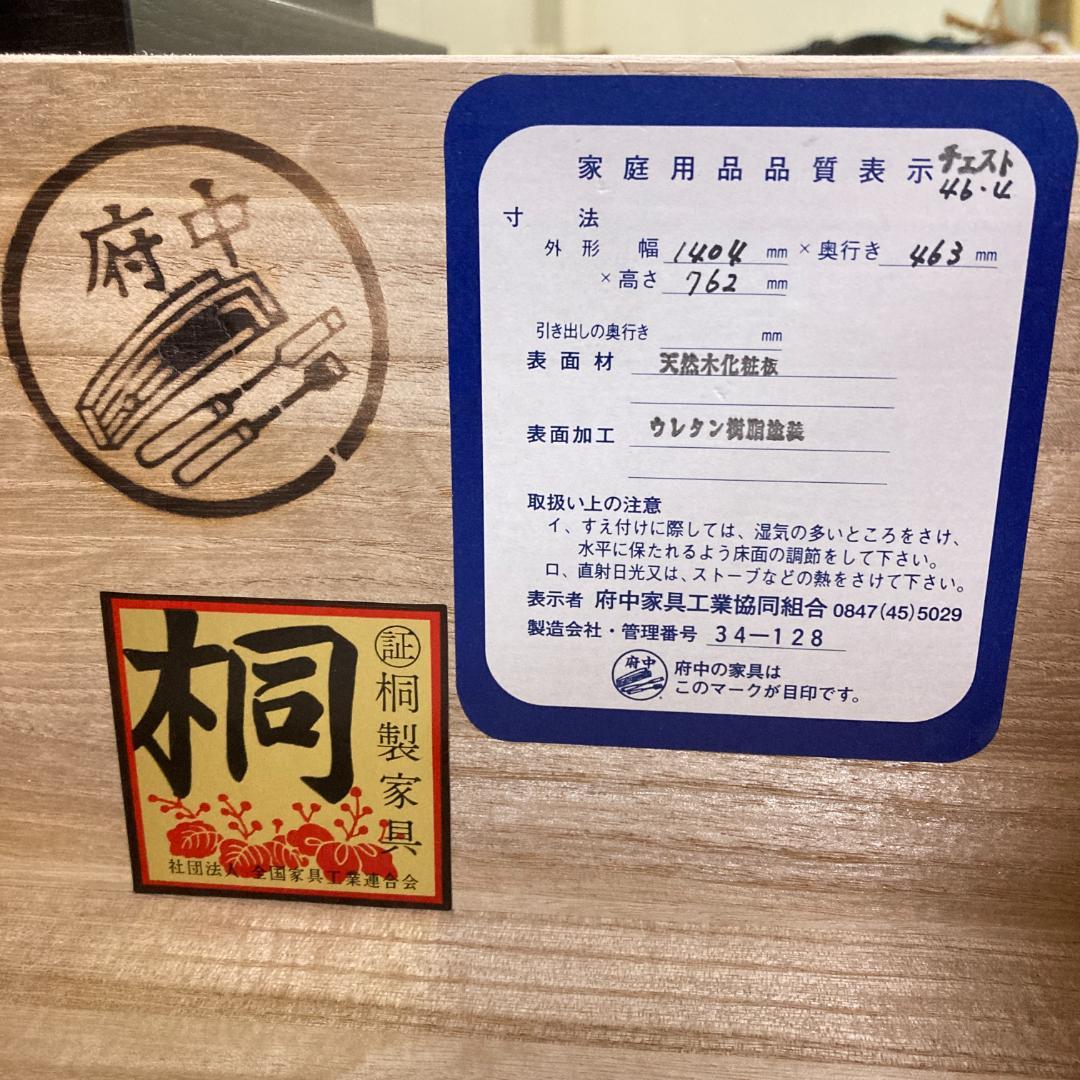 府中
家庭用品品質表示 チェスト
46・4
寸法
外形 幅 1404 mm × 奥行き 463 mm
× 高さ 762 mm
引き出しの奥行き mm
表面材 天然木化粧板
表面加工 ウレタン樹脂塗装
取扱い上の注意
イ、すえ付けに際しては、湿気の多いところをさけ、
水平に保たれるよう床面の調節をして下さい。
ロ、直射日光又は、ストーブなどの熱をさけて下さい。
表示者 府中家具工業協同組合 0847(45)5029
製造会社・管理番号 34―128
府中 府中の家具は
このマークが目印です。
桐
証 桐製家具
社団法人 全国家具工業連合会